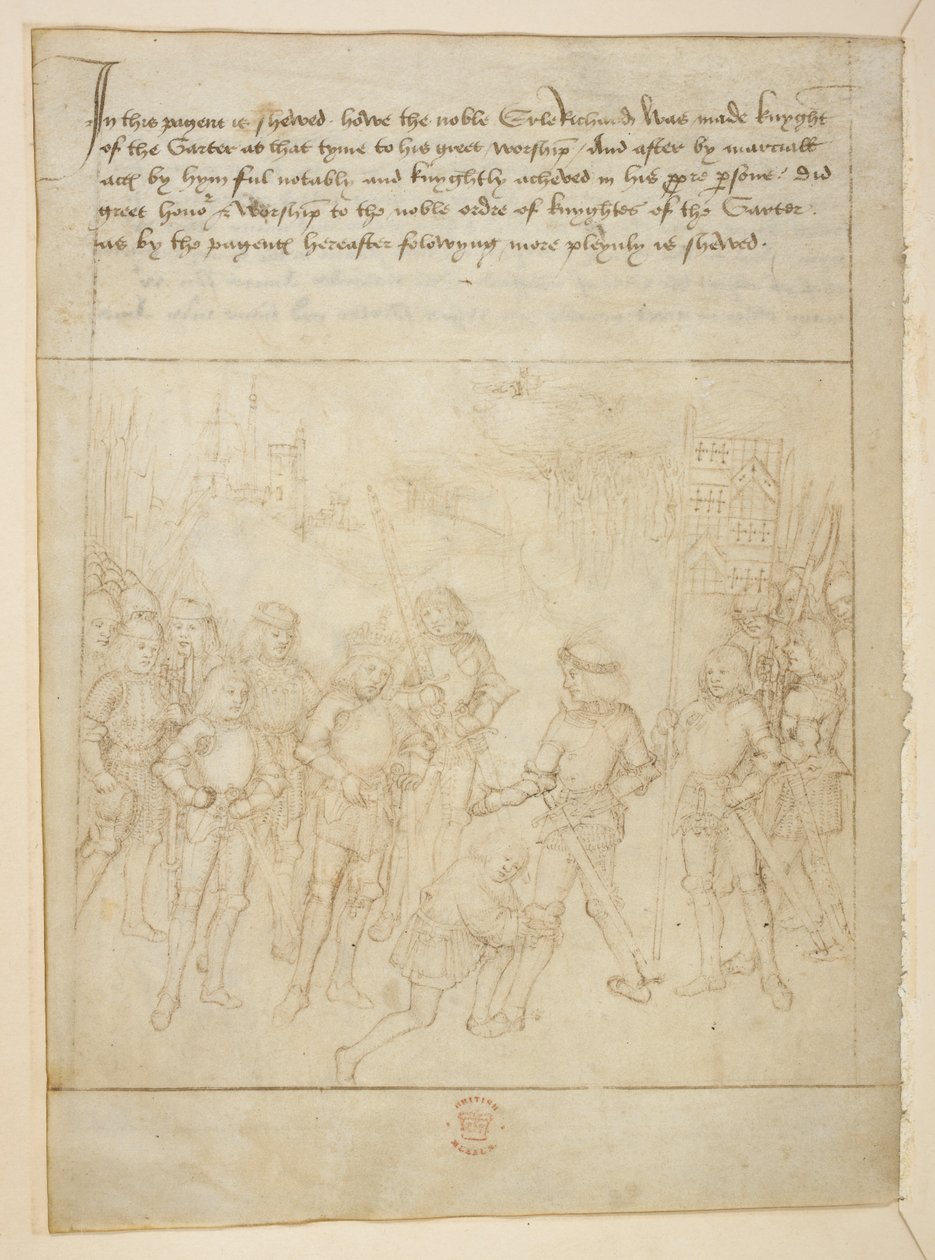 In this pagent is shewed howe the noble Erle Richard was made knyght
of the Garter at that tyme to his greet worship / And after by marciall
actes by hym ful notably and knyghtly acheved in his ꝓpre ꝑsone / Did
greet honor & Worship to the noble ordre of knyghtes of the Garter.
as by the pagentes hereafter folowyng more pleynly is shewed.
BRITISH
MUSEUM